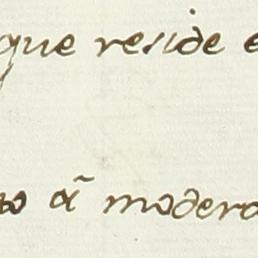 que reside e
to ã modera